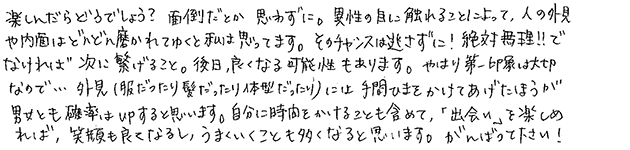 楽しんだらどうでしょう? 面倒だとか 思わずに。異性の目に触れることによって、人の外見
や内面はどんどん磨かれてゆくと私は思ってます。そのチャンスは逃さずに! 絶対無理!!で
なければ 次に繋げること。後日、良くなる可能性もあります。やはり第一印象は大切
なので… 外見(服だったり髪だったり体型だったり)には 手間ひまをかけてあげたほうが
男女とも確率はupすると思います。自分に時間をかけることも含めて、「出会い」を楽しめ
れば、笑顔も良くなるし、うまくいくことも多くなると思います。がんばって下さい!